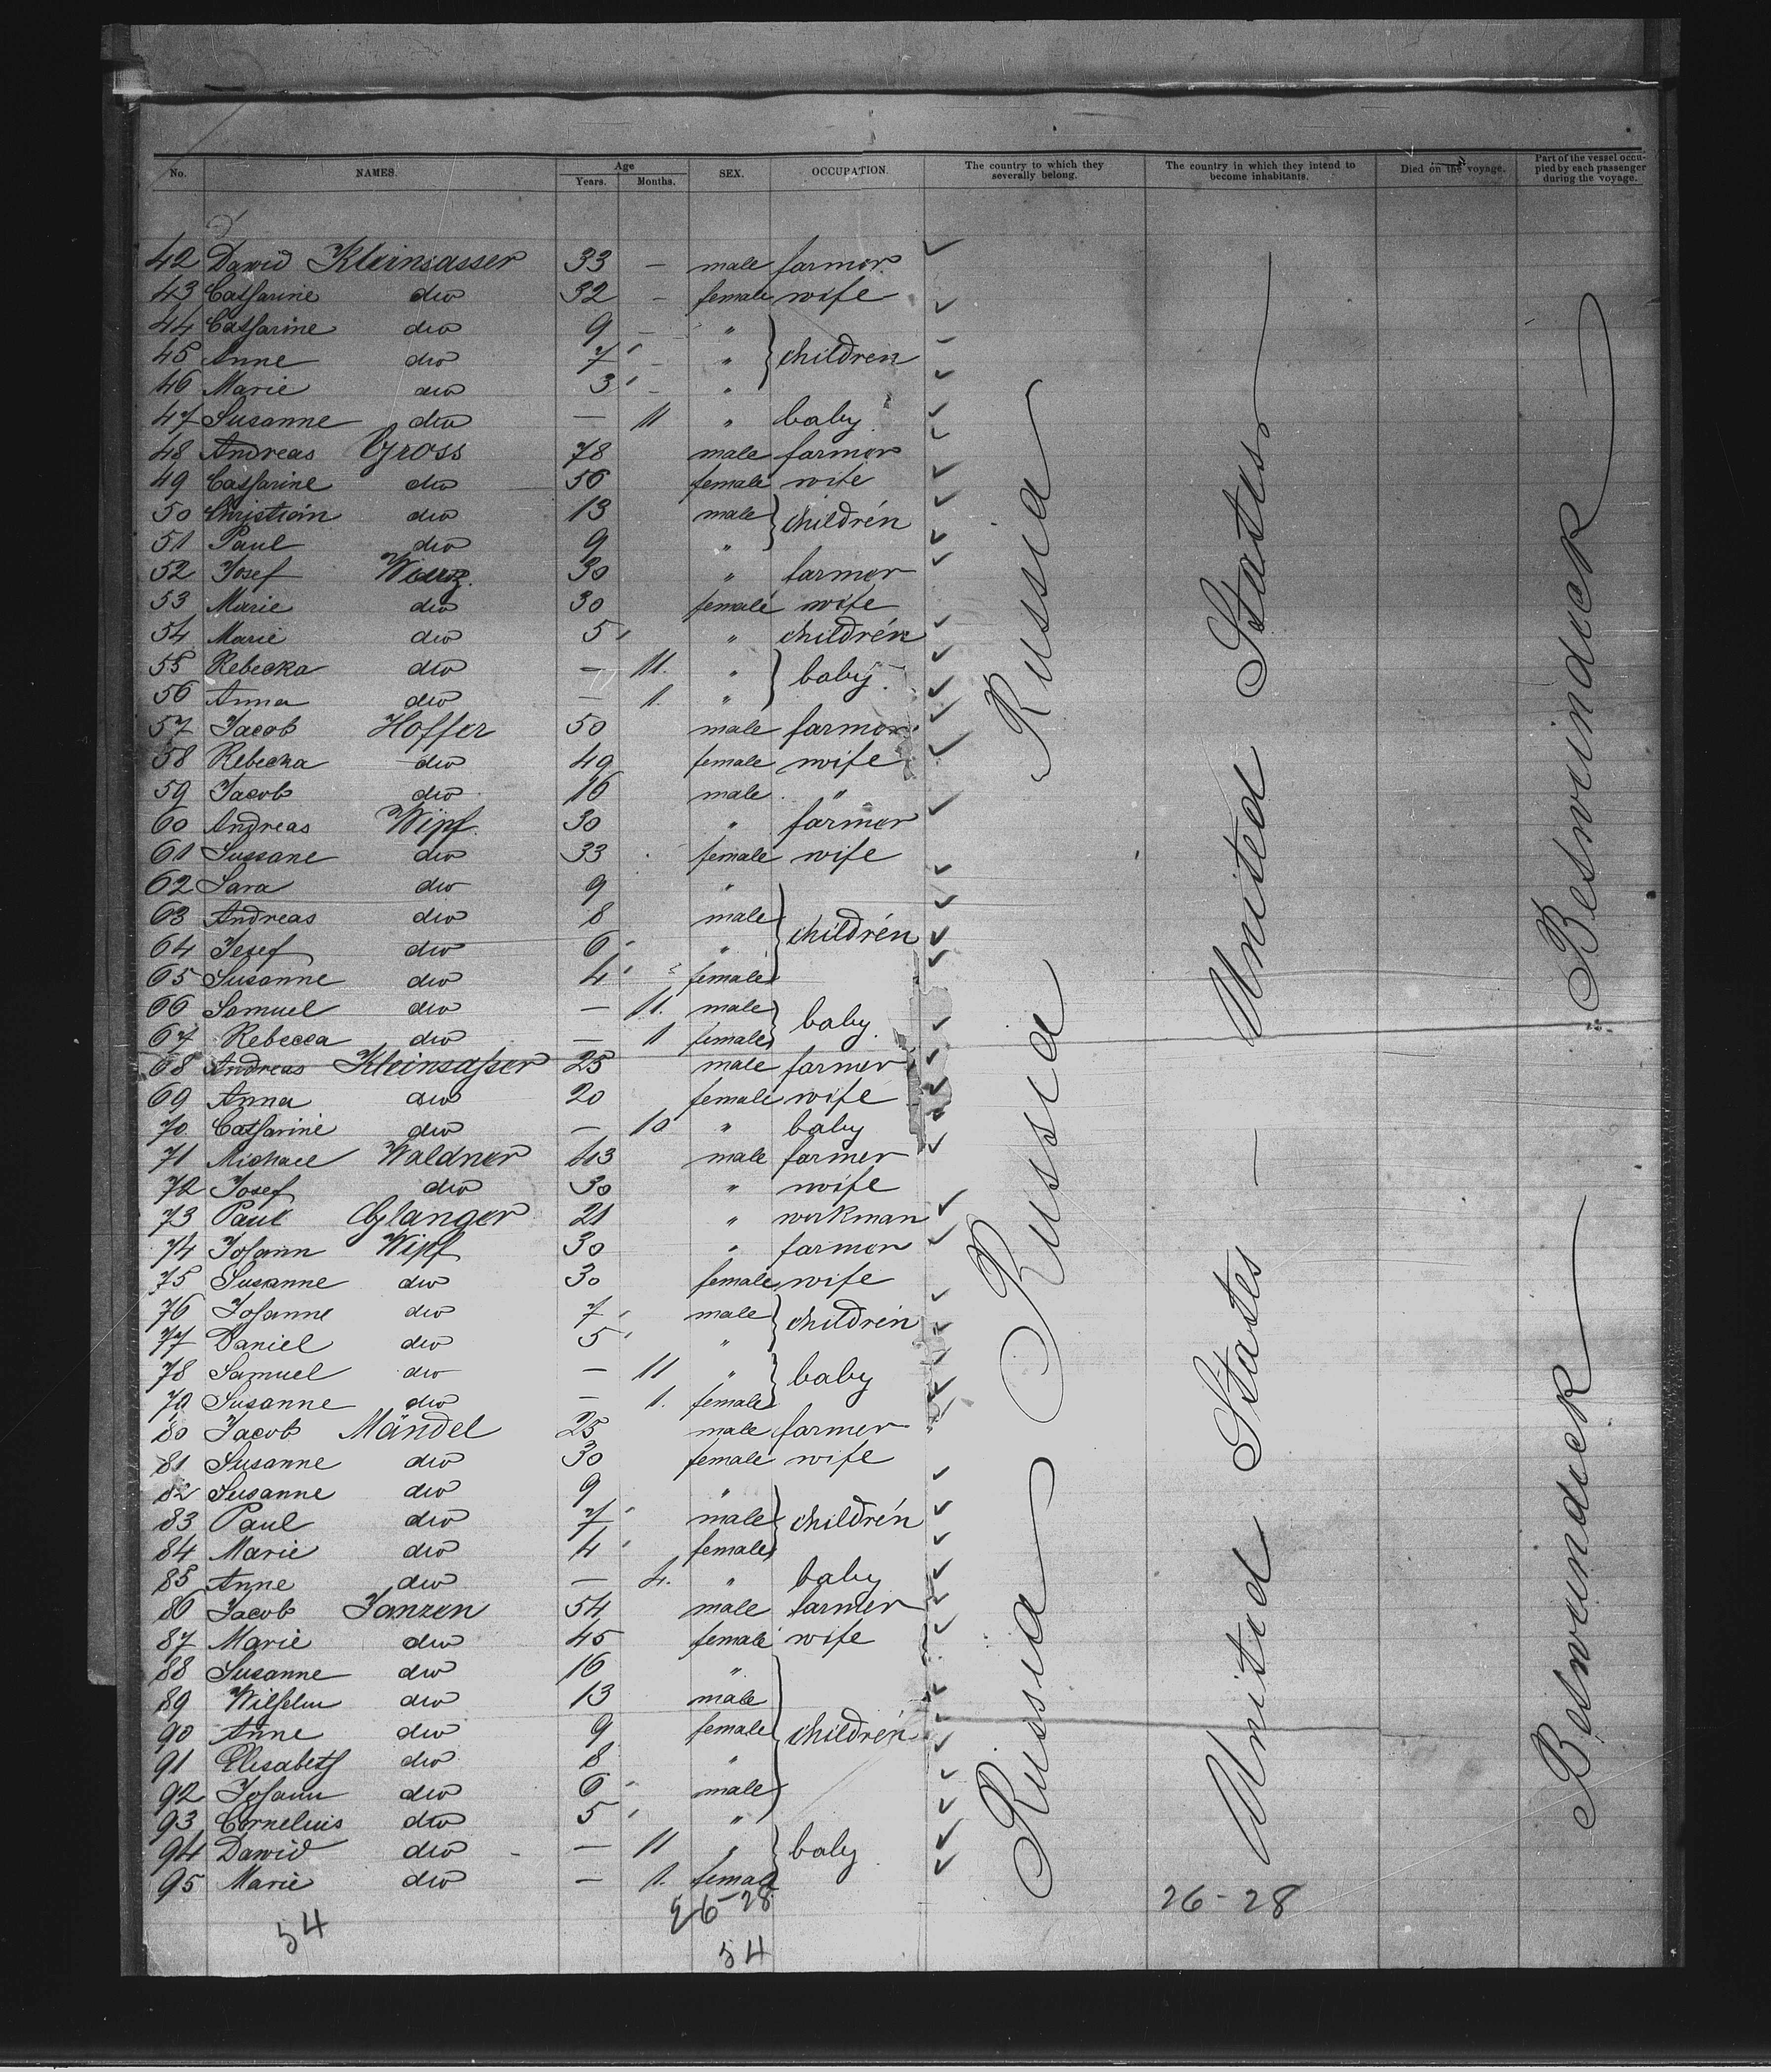 No. NAMES. Age Years. Months. SEX. OCCUPATION. The country to which they severally belong. The country in which they intend to become inhabitants. Died on the voyage. Part of the vessel occupied by each passenger during the voyage.
42 Dawid Kleinsasser 33 — male farmer
43 Catharine dio 32 - female wife
44 Catharine dio 9 — "
45 Anne dio 7 - " children
46 Marie dio 3 - "
47 Susanne dio — 11 " baby
48 Andreas Gross 78 male farmer
49 Catharine dio 56 female wife
50 Christian dio 13 male children
51 Paul dio 9 "
52 Josef 30 " farmer
53 Marie dio 30 female wife
54 Marie dio 5 " children
55 Rebecka dio — 11. " baby
56 Anna dio — 1. "
57 Jacob Hoffer 50 male farmer
58 Rebecka dio 49 female wife
59 Jacob dio 16 male "
60 Andreas Wipf. 30 " farmer
61 Sussane dio 33 female wife
62 Sara dio 9 "
63 Andreas dio 8 male children
64 Josef dio 6 "
65 Susanne dio 4 female
66 Samuel dio — 11. male baby
67 Rebecca dio — 1 female
68 Andreas Kleinsasser 25 male farmer
69 Anna dio 20 female wife
70 Catharine dio — 10 " baby
71 Michael Waldner 43 male farmer
72 Josef dio 30 " wife
73 Paul Glanger 21 " workman
74 Johann Wipf 30 " farmer
75 Susanne dio 30 female wife
76 Johanne dio 7 male children
77 Daniel dio 5 "
78 Samuel dio — 11 " baby
79 Susanne dio — 1. female
80 Jacob Mändel 25 male farmer
81 Susanne dio 30 female wife
82 Susanne dio 9 "
83 Paul dio 7 male children
84 Marie dio 4 female
85 Anne dio — 4. " baby
86 Jacob Janzen 54 male farmer
87 Marie dio 45 female wife
88 Susanne dio 16 "
89 Wilhelm dio 13 male
90 Anne dio 9 female children
91 Elisabeth dio 8 "
92 Johann dio 6 male
93 Cornelius dio 5 "
94 Dawid dio — 11 " baby
95 Marie dio — 1. female
Russia Russia Russia
United States — United States
Betwindeck Betwindeck
26-28 26-28
54 54